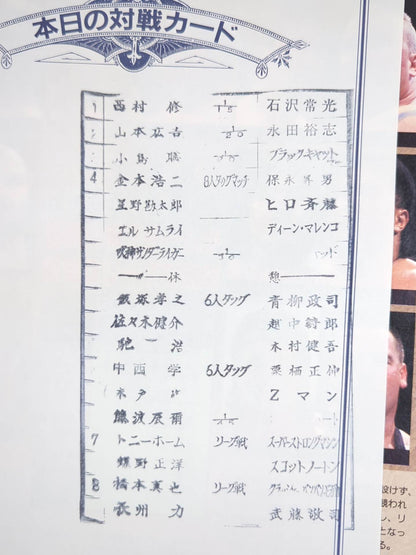 本日の対戦カード
1 西村 修 石沢常光
2 山本広吉 永田裕志
3 小島 聡 ブラックキャット
4 金本浩二 8人タッグマッチ 保永昇男
星野勘太郎 ヒロ斉藤
エルサムライ ディーン・マレンコ
獣神サンダーライガー
休 憩
飯塚孝之 6人タッグ 青柳政司
佐々木健介 越中詩郎
馳 浩 木村健吾
中西 学 6人タッグ 栗栖正伸
木戸 Zマン
藤波辰爾
7 トニーホーム リーグ戦 スーパーストロングマシン
蝶野正洋 スコットノートン
8 橋本真也 リーグ戦
長州 力 武藤敬司